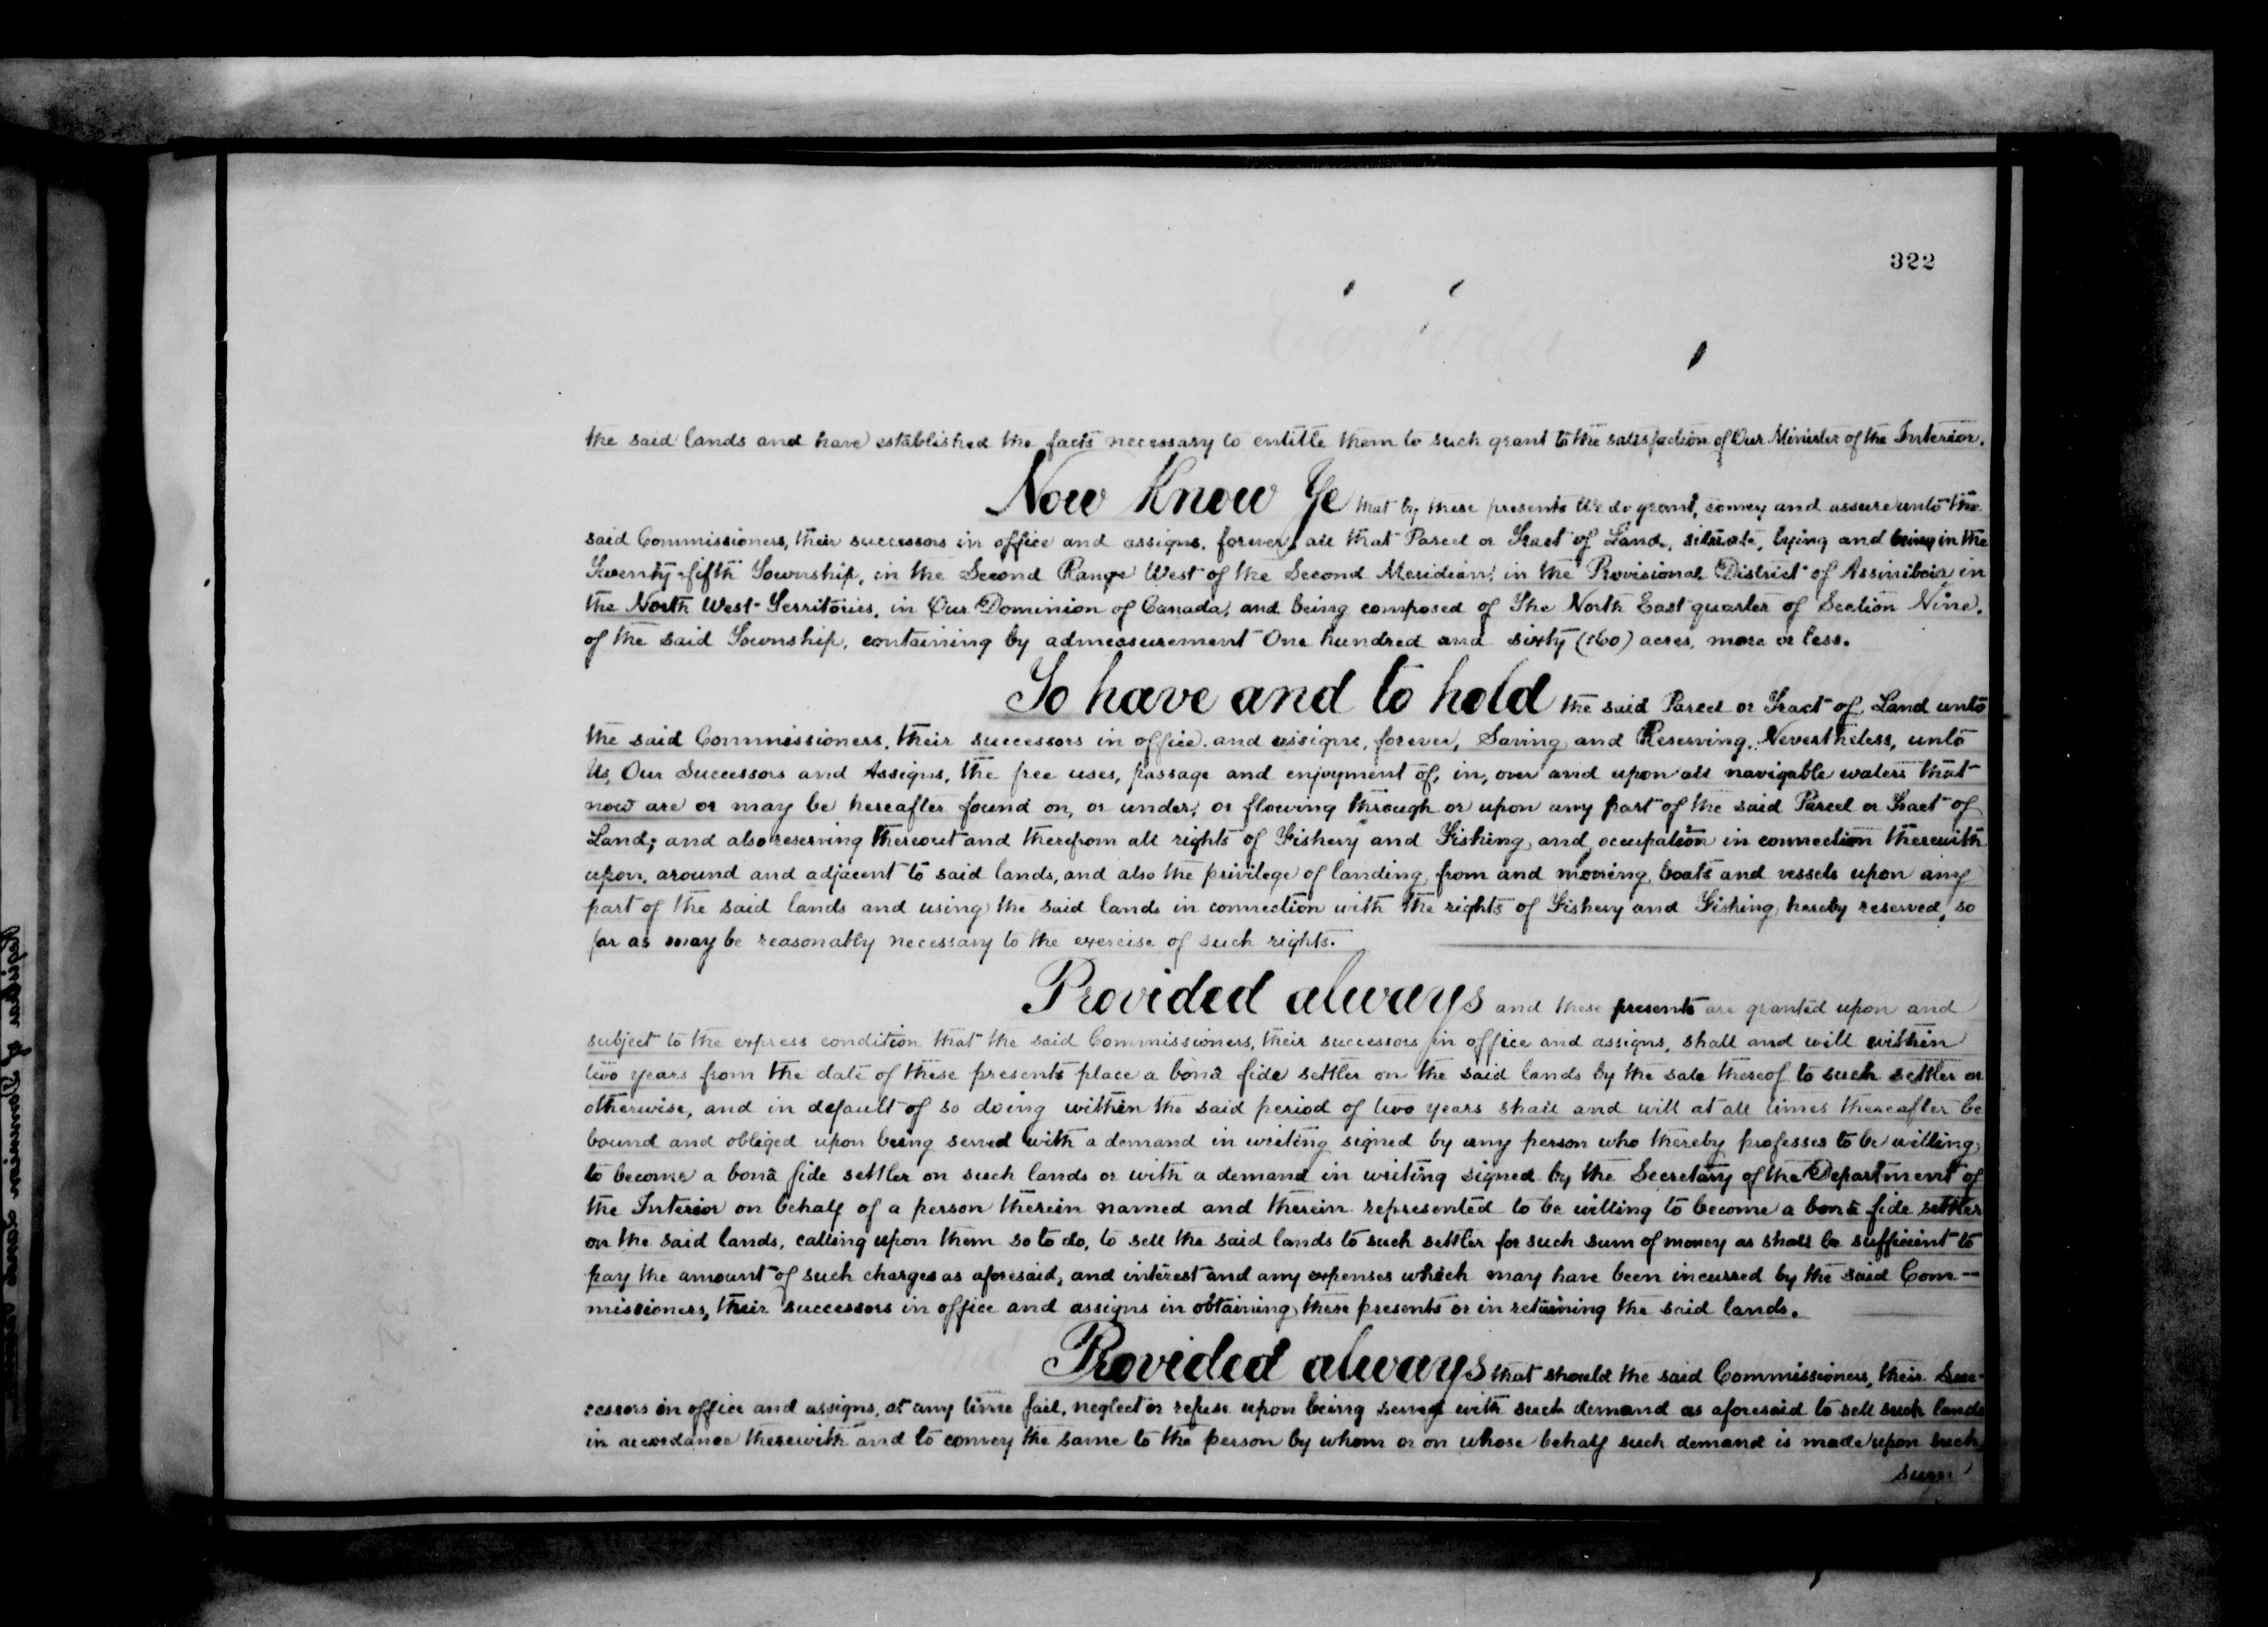 322
the said lands and have established the facts necessary to entitle them to such grant to the satisfaction of Our Minister of the Interior.
Now Know Ye that by these presents We do grant, convey and assure unto the
said Commissioners, their successors in office and assigns, forever, all that Parcel or Tract of Land, situate, lying and being in the
Twenty-fifth Township, in the Second Range West of the Second Meridian, in the Provisional District of Assiniboia in
the North West Territories, in Our Dominion of Canada, and being composed of The North East quarter of Section Nine,
of the said Township, containing by admeasurement One hundred and sixty (160) acres, more or less.
To have and to hold the said Parcel or Tract of Land unto
the said Commissioners, their successors in office and assigns, forever, Saving and Reserving, Nevertheless, unto
Us, Our Successors and Assigns, the free uses, passage and enjoyment of, in, over and upon all navigable waters that
now are or may be hereafter found on, or under, or flowing through or upon any part of the said Parcel or Tract of
Land; and also reserving thereout and therefrom all rights of Fishery and Fishing and occupation in connection therewith
upon, around and adjacent to said lands, and also the privilege of landing from and mooring boats and vessels upon any
part of the said lands and using the said lands in connection with the rights of Fishery and Fishing hereby reserved, so
far as may be reasonably necessary to the exercise of such rights.
Provided always and these presents are granted upon and
subject to the express condition that the said Commissioners, their successors in office and assigns, shall and will within
two years from the date of these presents place a bonâ fide settler on the said lands by the sale thereof to such settler or
otherwise, and in default of so doing within the said period of two years shall and will at all times thereafter be
bound and obliged upon being served with a demand in writing signed by any person who thereby professes to be willing
to become a bonâ fide settler on such lands or with a demand in writing signed by the Secretary of the Department of
the Interior on behalf of a person therein named and therein represented to be willing to become a bonâ fide settler
on the said lands, calling upon them so to do, to sell the said lands to such settler for such sum of money as shall be sufficient to
pay the amount of such charges as aforesaid, and interest and any expenses which may have been incurred by the said Com-
missioners, their successors in office and assigns in obtaining these presents or in retaining the said lands.
Provided always that should the said Commissioners, their Suc-
cessors in office and assigns, at any time fail, neglect or refuse upon being served with such demand as aforesaid to sell such lands
in accordance therewith and to convey the same to the person by whom or on whose behalf such demand is made upon such